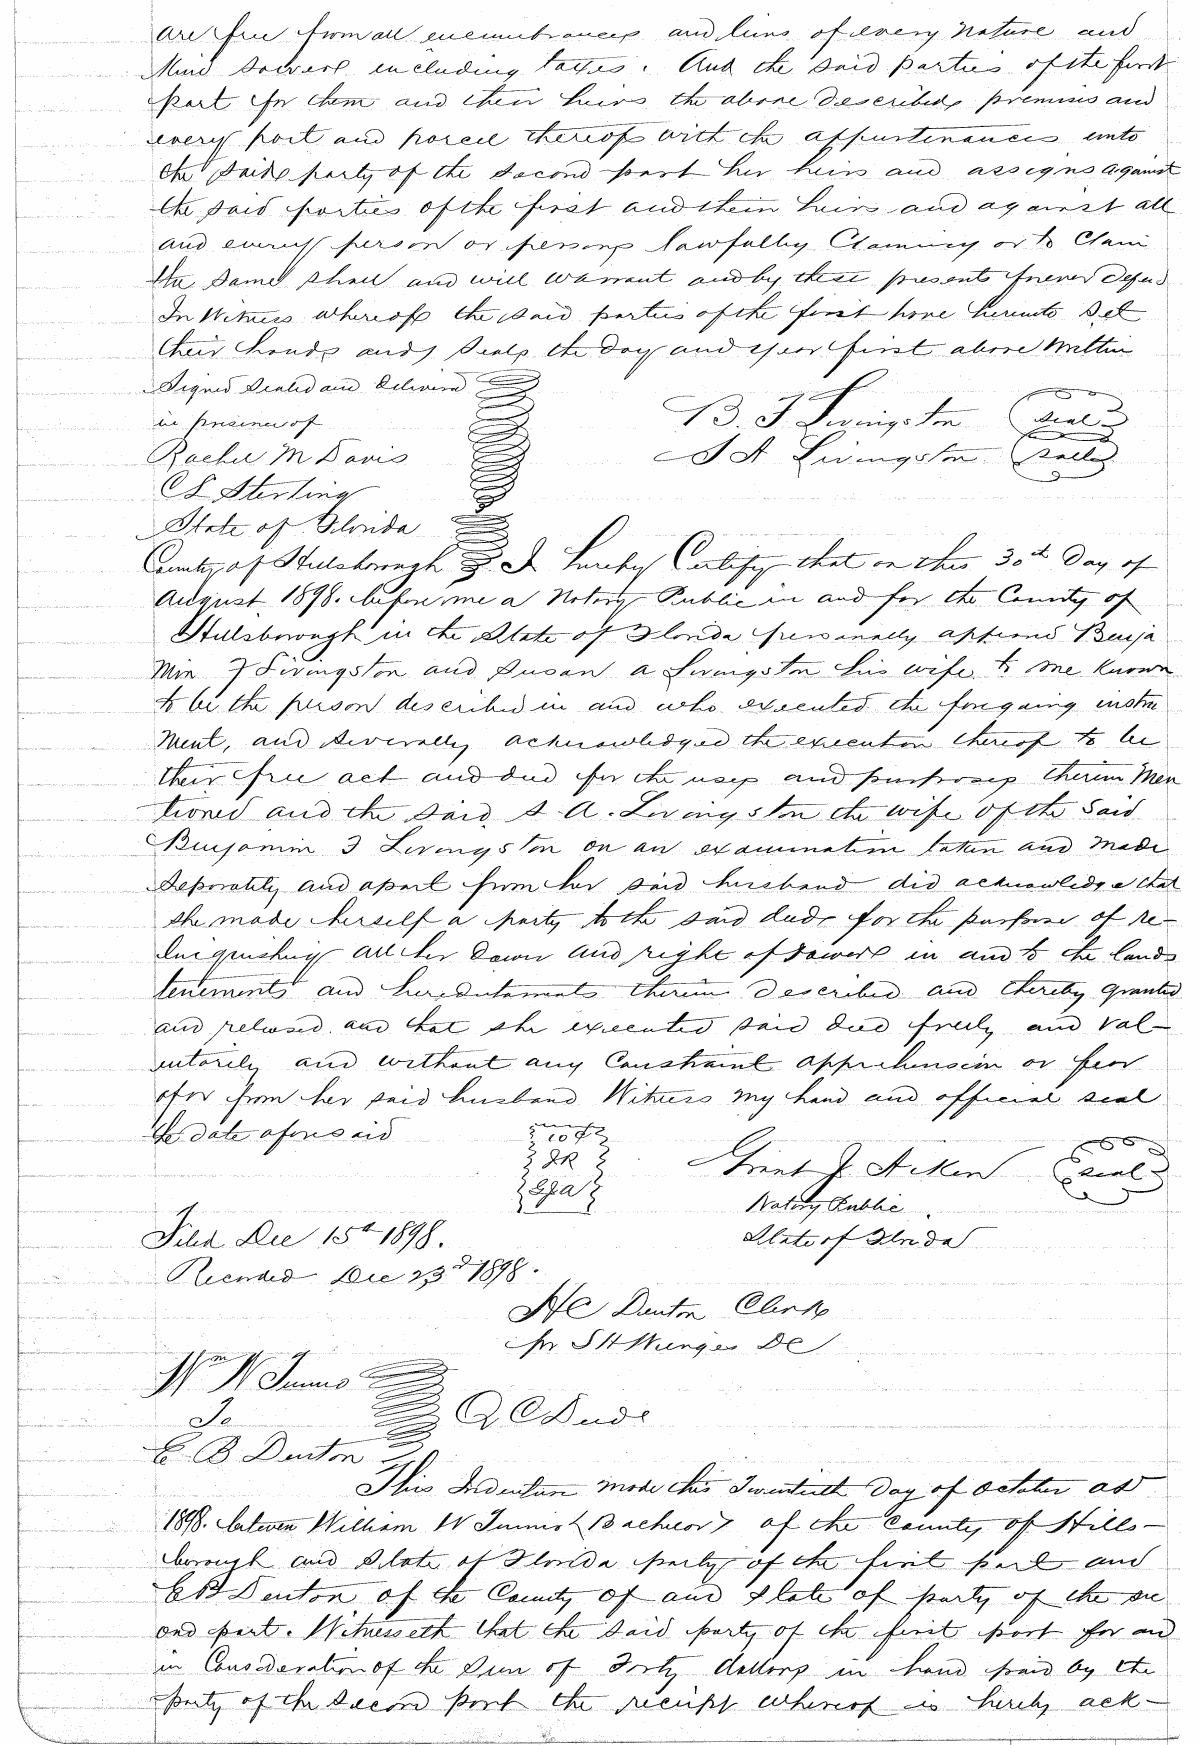 are free from all encumbrances and liens of every nature and
Kind Dower including taxes. And the said parties of the first
part for them and their heirs the above described premises and
every part and parcel thereof with the appurtinances unto
the said party of the second part her heirs and assigns against
the said parties of the first and their heirs and against all
and every person or persons lawfully Claming or to Claim
the same shall and will warrant and by these presents forever defend
In Witness whereof the said parties of the first have hereunto set
their hands and seals the day and year first above written
Signed Sealed and Delivered
in presence of
B. F. Livingston Seal
Rachel M Davis
S A Livingston
C L Sterling
State of Florida
County of Hillsborough I hereby Certify that on this 30th Day of
August 1898. before me a Notary Public in and for the County of
Hillsborough in the State of Florida personally appeared Benja
Min F Livingston and Susan a Livingston his wife to me Known
to be the person described in and who executed the foregoing instru
Ment, and severally acknowledged the execution thereof to be
their free act and deed for the uses and purposes therein Men
tioned and the said S. A. Livingston the wife of the said
Benjamin F Livingston on an examination taken and made
separately and apart from her said husband did acknowledge that
she made herself a party to the said deed for the purpose of re-
linquishing all her Dower and right of Dower in and to the lands
tenements and hereditaments therein described and thereby granted
and released and that she executed said deed freely and Vol-
untarily and without any Constraint apprehension or fear
of or from her said husband Witness my hand and official seal
the date aforesaid
10 c
IR
GJA
Grant J Aiken Seal
Notary Public
Filed Dec 15th 1898.
State of Florida
Recorded Dec 23d 1898.
H C Denton Clerk
DC
Wm W
To
Q C Deed
E. B Denton
This Indenture made this Twentieth day of October AD
1898. between William W (Bachelor) of the County of Hills-
borough and State of Florida party of the first part and
E B Denton of the County of and State of party of the sec
ond part. Witnesseth that the said party of the first part for and
in Consideration of the Sum of Forty dollars in hand paid by the
party of the Second part the receipt whereof is hereby ack-